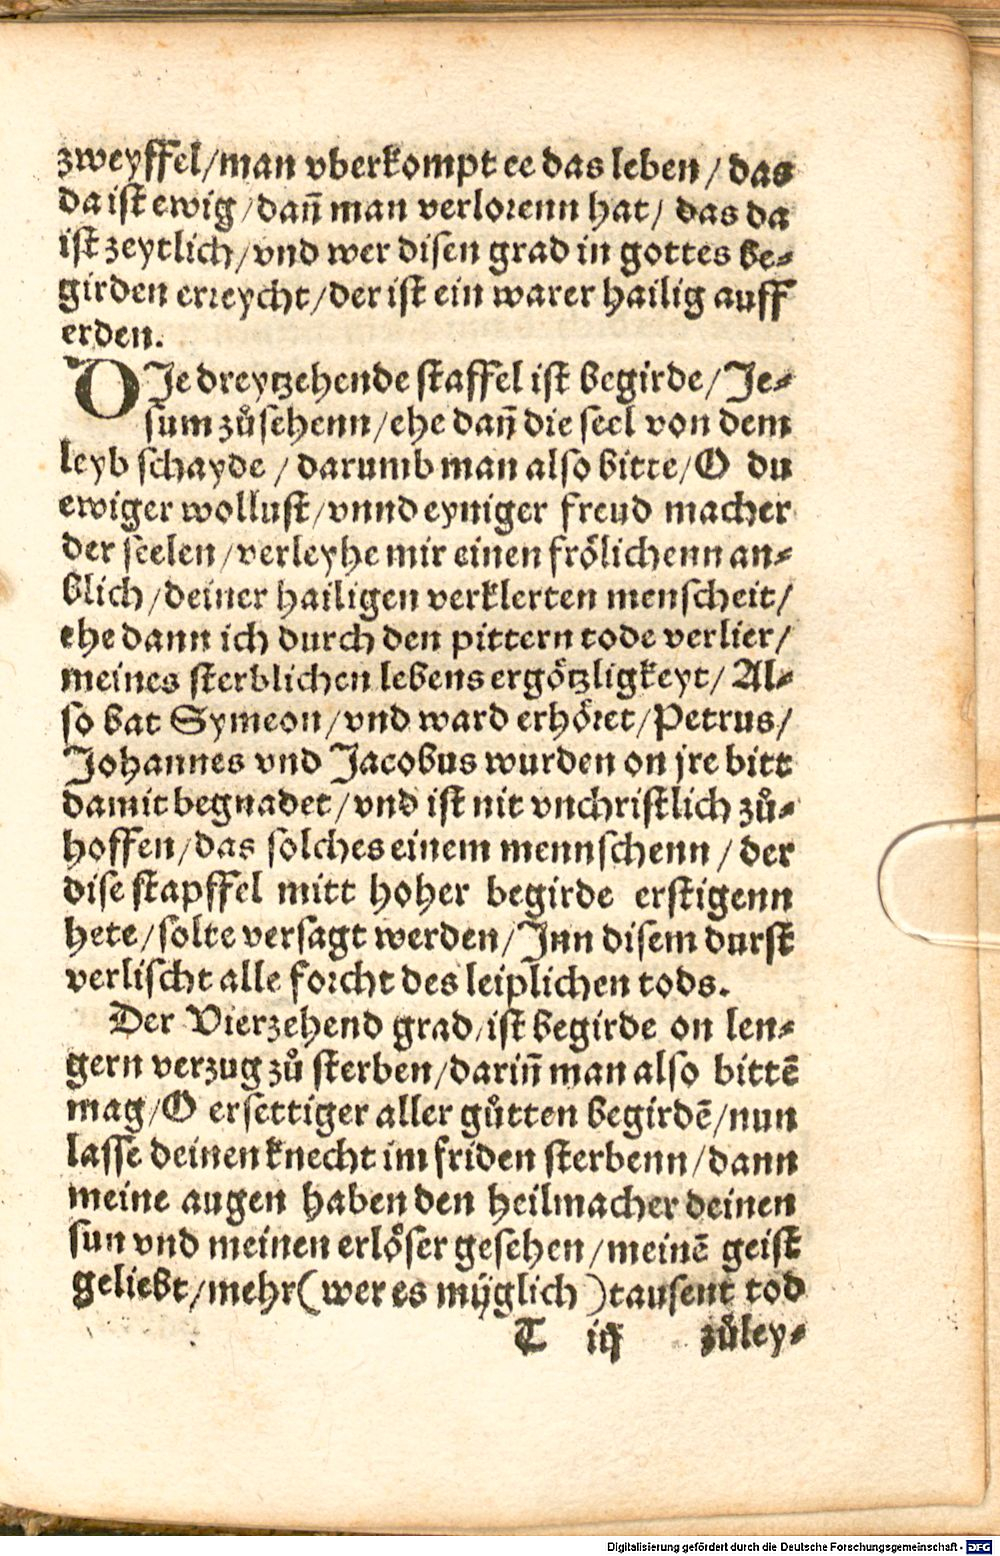 zweyffel/man vberkompt ee das leben/ das
da ist ewig/dañ man verlorenn hat/ das da
ist zeytlich/vnd wer disen grad in gottes be-
girden erreycht/der ist ein warer hailig auff
erden.
DJe dreytzehende staffel ist begirde/Je-
sum zůsehenn/ehe dañ die seel von dem
leyb schayde/darumb man also bitte/O du
ewiger wollust/vnnd eyniger freud macher
der seelen/verleyhe mir einen frölichenn an-
blich/deiner hailigen verklerten menscheit/
ehe dann ich durch den pittern tode verlier/
meines sterblichen lebens ergötzligkeyt/Al-
so bat Symeon/vnd ward erhöret/Petrus/
Johannes vnd Jacobus wurden on jre bitt
damit begnadet/vnd ist nit vnchristlich zů-
hoffen/das solches einem mennschenn/der
dise stapffel mitt hoher begirde erstigenn
hete/solte versagt werden/Jnn disem durst
verlischt alle forcht des leiplichen tods.
Der Vierzehend grad/ist begirde on len-
gern verzug zů sterben/dariñ man also bittē
mag/O ersettiger aller gůtten begirdē/nun
lasse deinen knecht im friden sterbenn/dann
meine augen haben den heilmacher deinen
sun vnd meinen erlöser gesehen/meinē geist
geliebt/mehr(wer es müglich)tausent tod
T iij zůley-
Digitalisierung gefördert durch die Deutsche Forschungsgemeinschaft - DFG